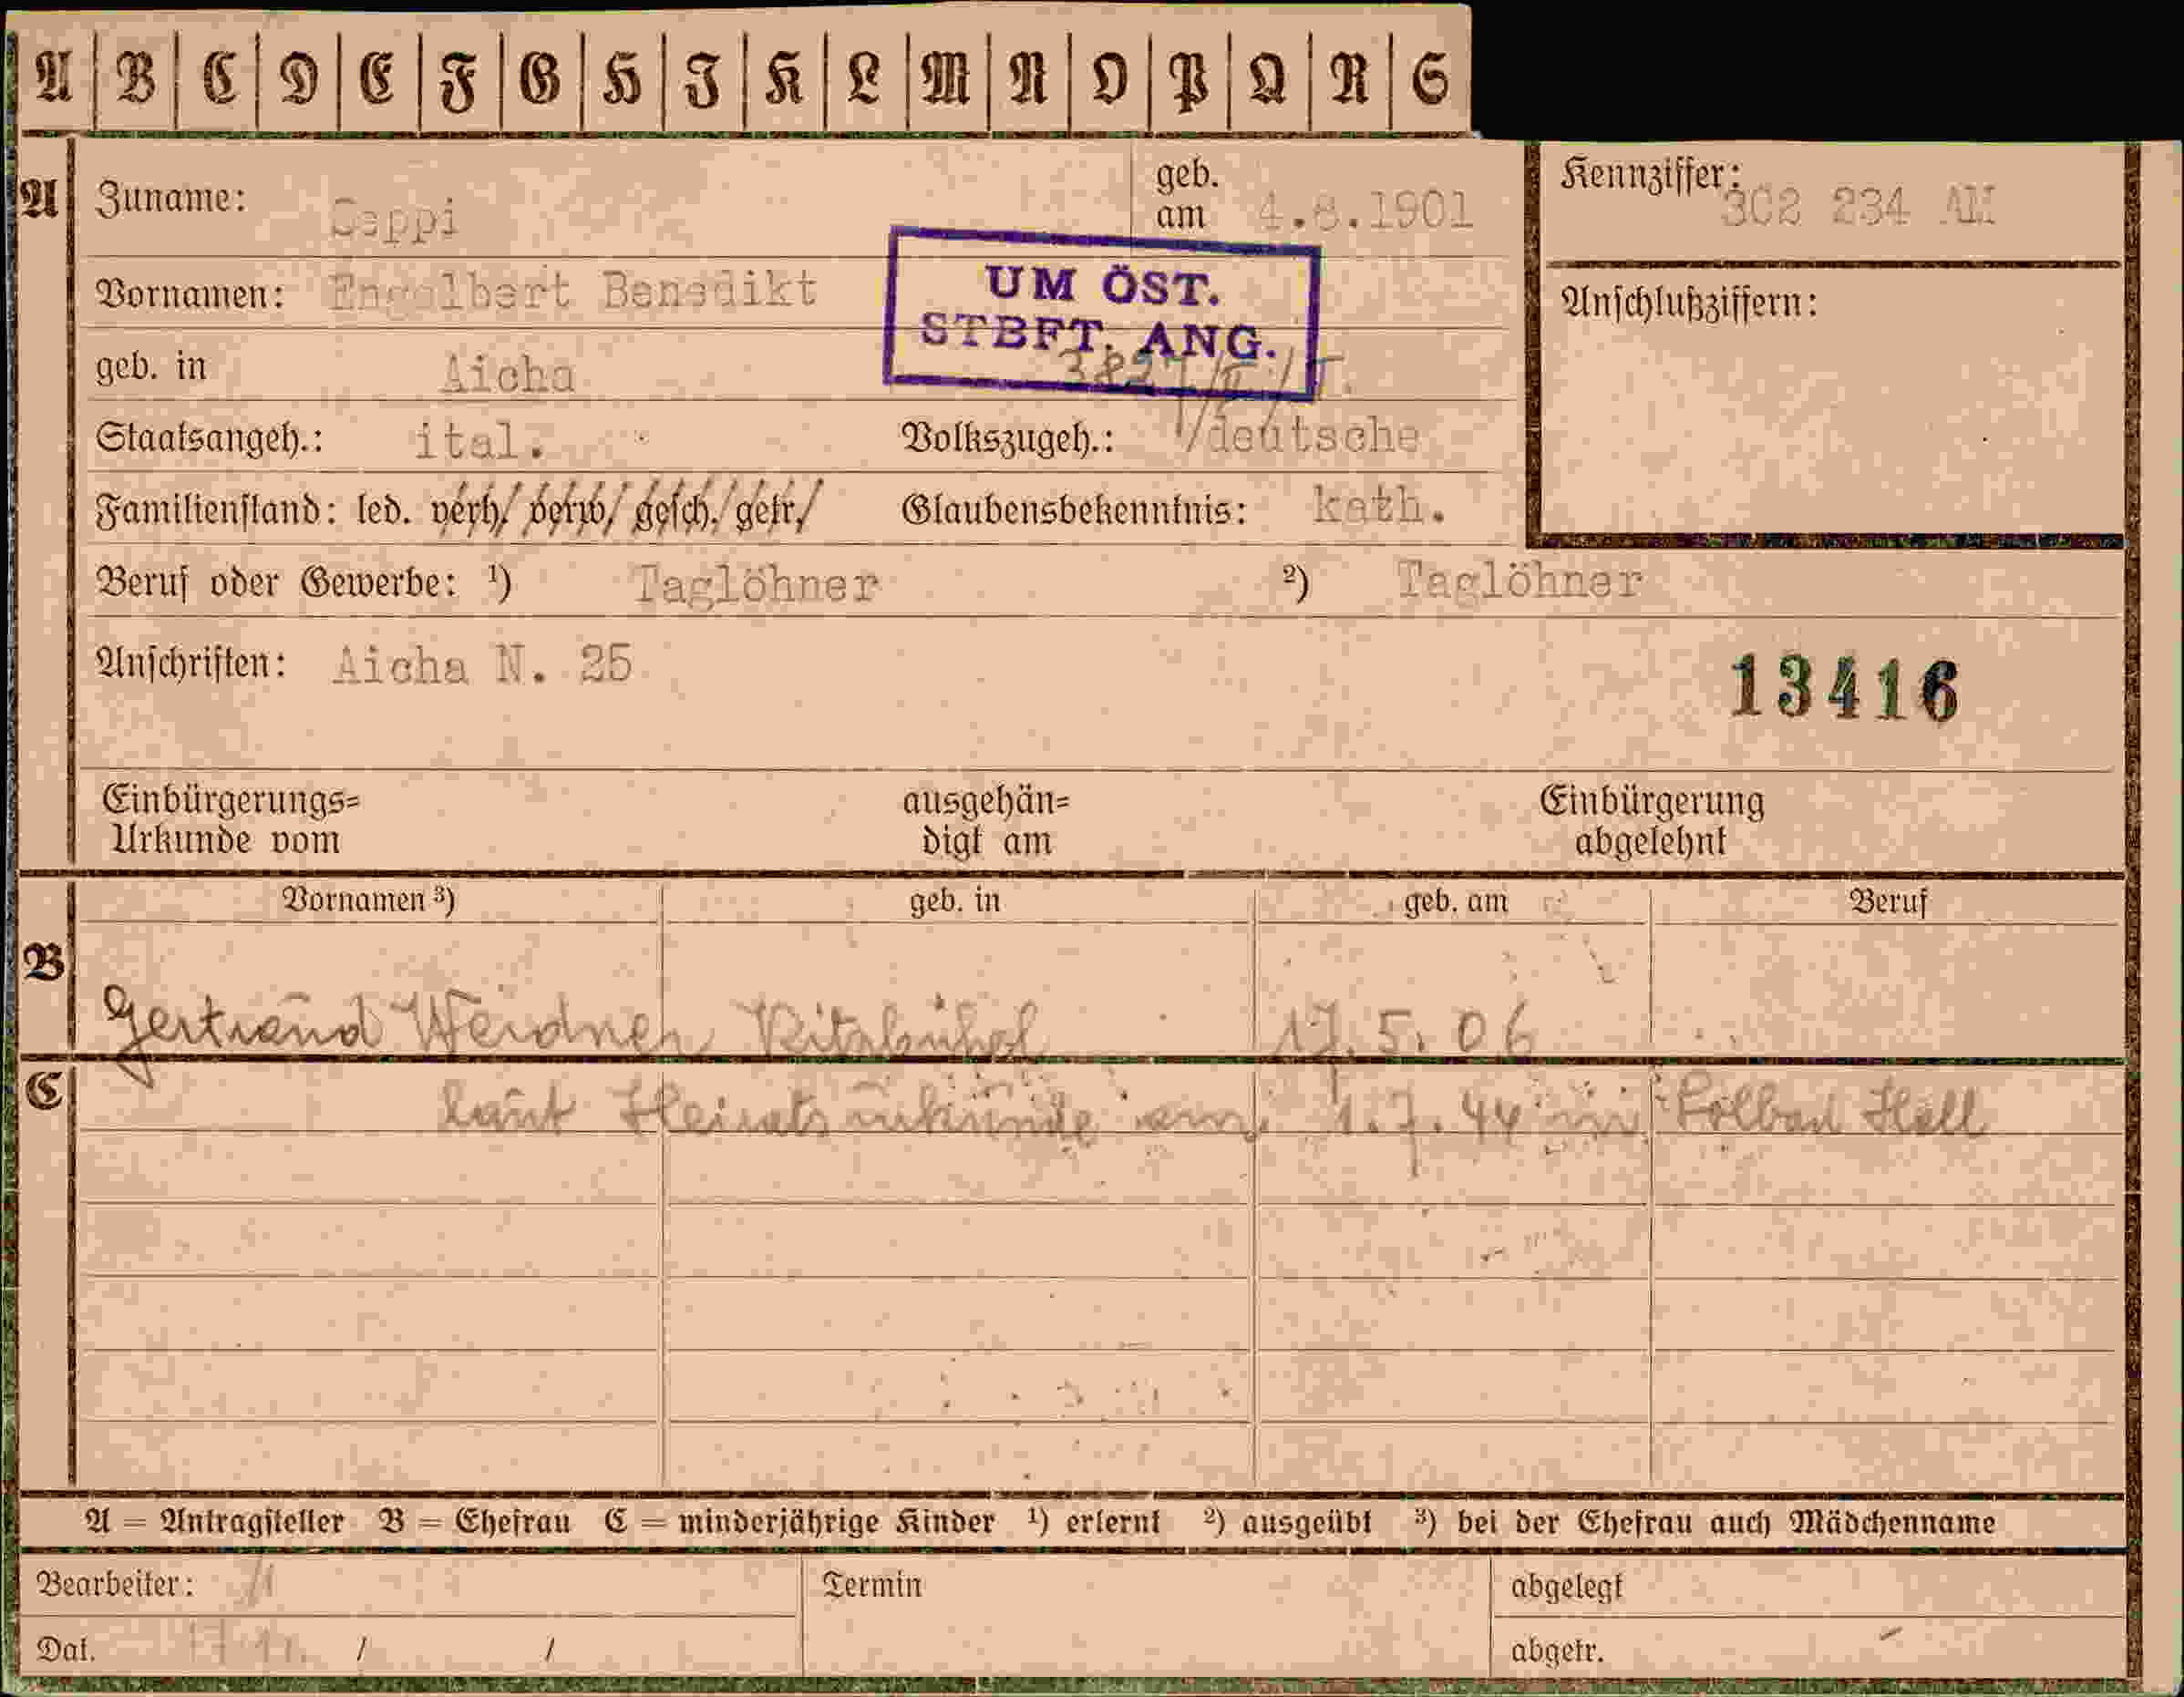 A B C D E F G H J K L M N O P Q R S
A Zuname: geb. am 4.8.1901 Kennziffer: 302 234 AH
UM ÖST.
STBFT. ANG.
Vornamen: Engelbert Benedikt Anschlußziffern:
geb. in Aicha
Staatsangeh.: ital. Volkszugeh.: deutsche
Familienstand: led. verh/ verw/ gesch./ getr/ Glaubensbekenntnis: kath.
Beruf oder Gewerbe: ¹) Taglöhner ²) Taglöhner
Anschriften: Aicha N. 25
13416
Einbürgerungs= ausgehän= Einbürgerung
Urkunde vom digt am abgelehnt
Vornamen ³) geb. in geb. am Beruf
B
Gertraud Weidner Kitzbühel 17.5.06
C
laut Heiratsurkunde am 1.7.44 in Solbad Hall
A = Antragsteller B = Ehefrau C = minderjährige Kinder ¹) erlernt ²) ausgeübt ³) bei der Ehefrau auch Mädchenname
Bearbeiter: Termin abgelegt
Dat. / / abgetr.